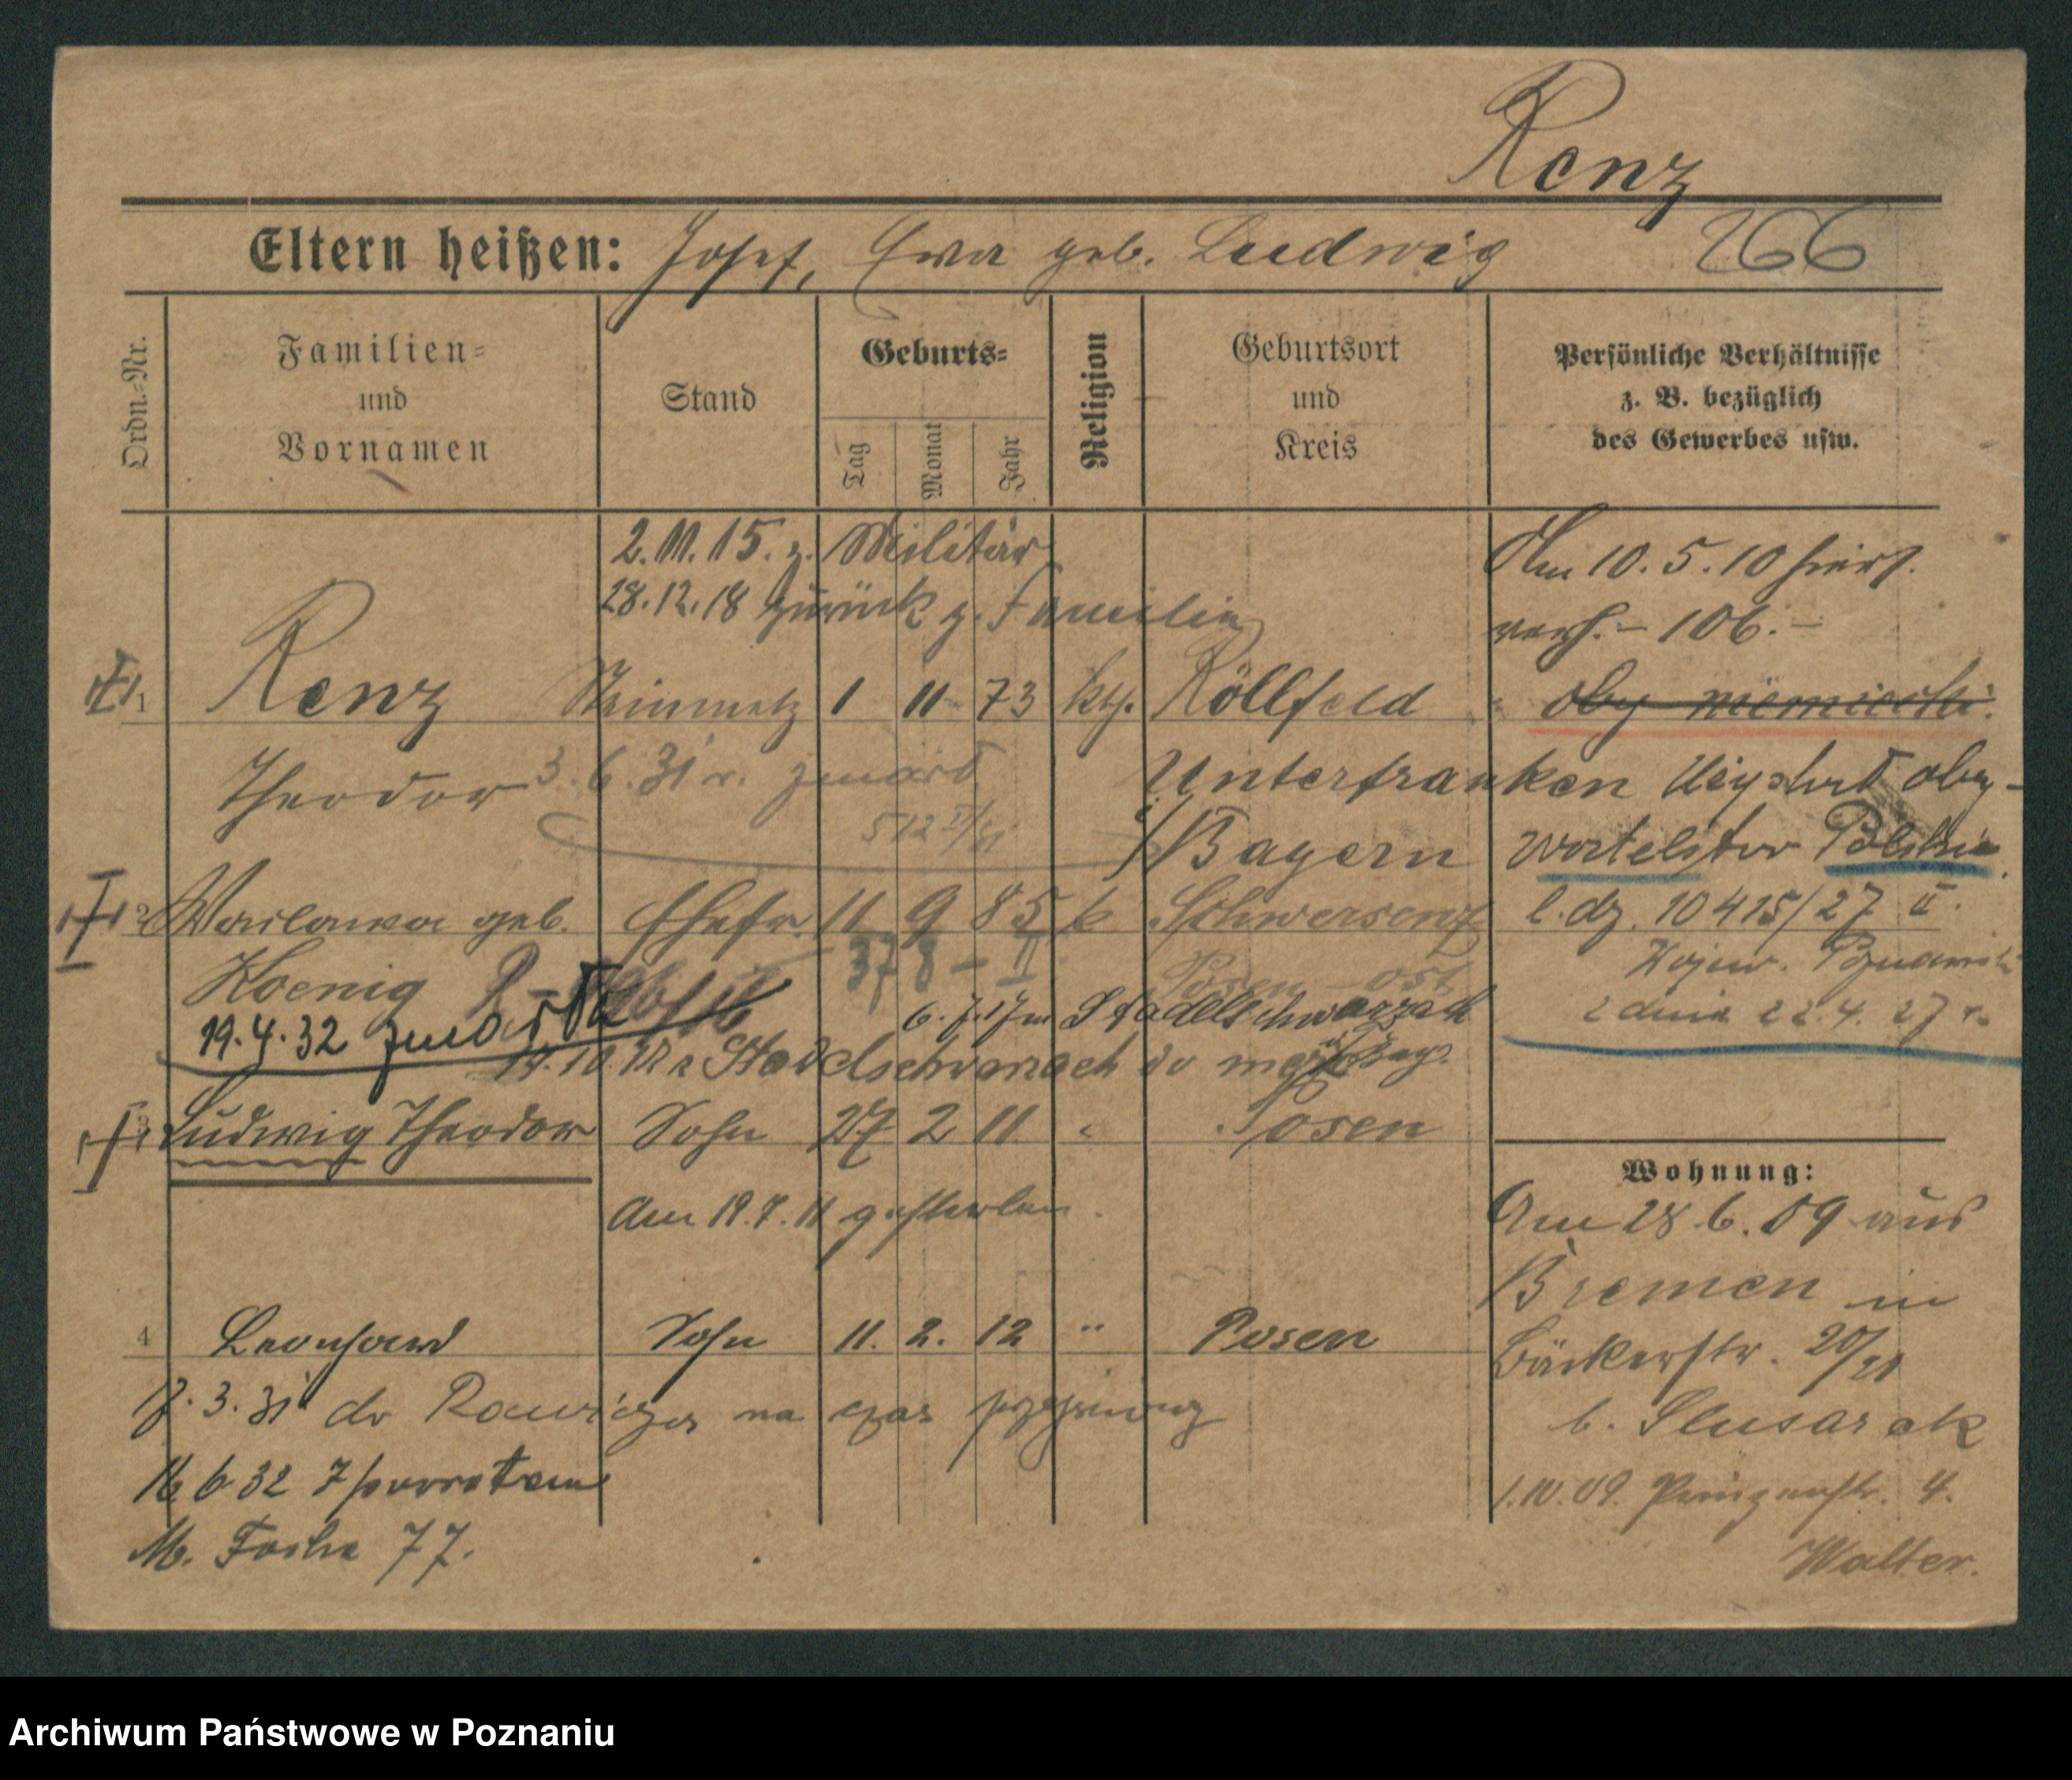 Renz
Eltern heißen: Josef, Ewa geb. Ludwig 266
Ordn.-Nr.
Familien-
und
Vornamen
Stand
Geburts-
Tag
Monat
Jahr
Religion
Geburtsort
und
Kreis
Persönliche Verhältnisse
z. B. bezüglich
des Gewerbes usw.
2.11.15. z. Militär
28.12.18 zurück z. Familie
Am 10.5.10 hiers.
verh. – 106. –
1 Renz Steinmetz 1 11 73 kth. Röllfeld
oby niemiecki.
Theodor 3.6.31 r. zmarł
Unterfranken
512
Bayern
Uzyskał oby-
watelstwo Polskie
l. dz. 10415/27 II.
Wojew. Poznański
z dnia 22.4.27 r.
2 geb. Ehefr. 11 9 85 k Schwersenz
Koenig
378 – II
Posen Ost
19.4.32 zmarła
6.7.17 Stadtschwarzach
Bay.
3 Ludwig Theodor Sohn 27 2 11 Posen
Am 19.7.11 gestorben.
4 Leonhard Sohn 11. 2. 12 " Posen
17.3.31 do Rawicza na czas
16.6.32 z powrotem
M. Focha 77.
Wohnung:
Am 28.6.09 aus
Bremen in
Bäckerstr. 20/21
b. Slusarek
1.10.09. Prinzenstr. 4.
Walter.
Archiwum Państwowe w Poznaniu